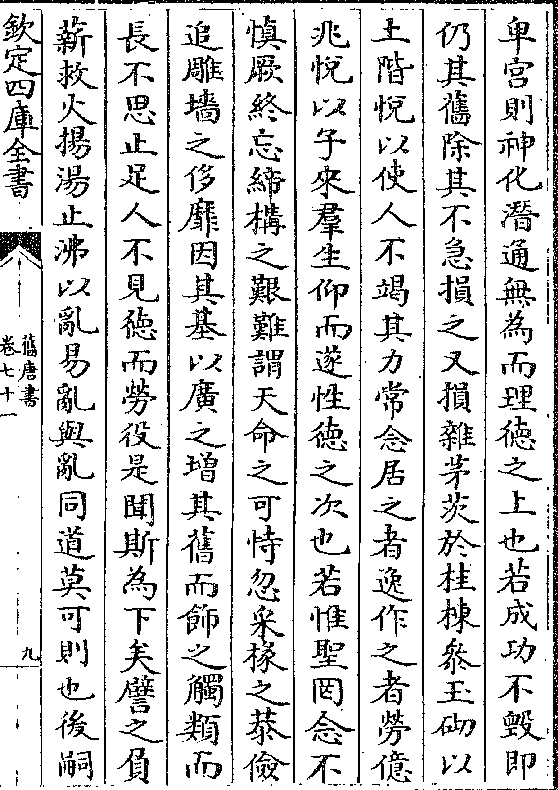 卑宮則神化潛通無為而理德之上也若成功不毀即
仍其舊除其不急損之又損雜茅茨於桂棟叅玉砌以
土階悅以使人不竭其力常念居之者逸作之者勞億
兆悅以子來羣生仰而遂性德之次也若惟聖罔念不
慎厥終忘締構之艱難謂天命之可恃忽采椽之恭儉
追雕墻之侈靡因其基以廣之增其舊而飾之觸類而
長不思止足人不見德而勞役是聞斯為下矣譬之負
薪救火揚湯止沸以亂易亂與亂同道莫可則也後嗣
欽定四庫全書
舊唐書
卷七十一
九